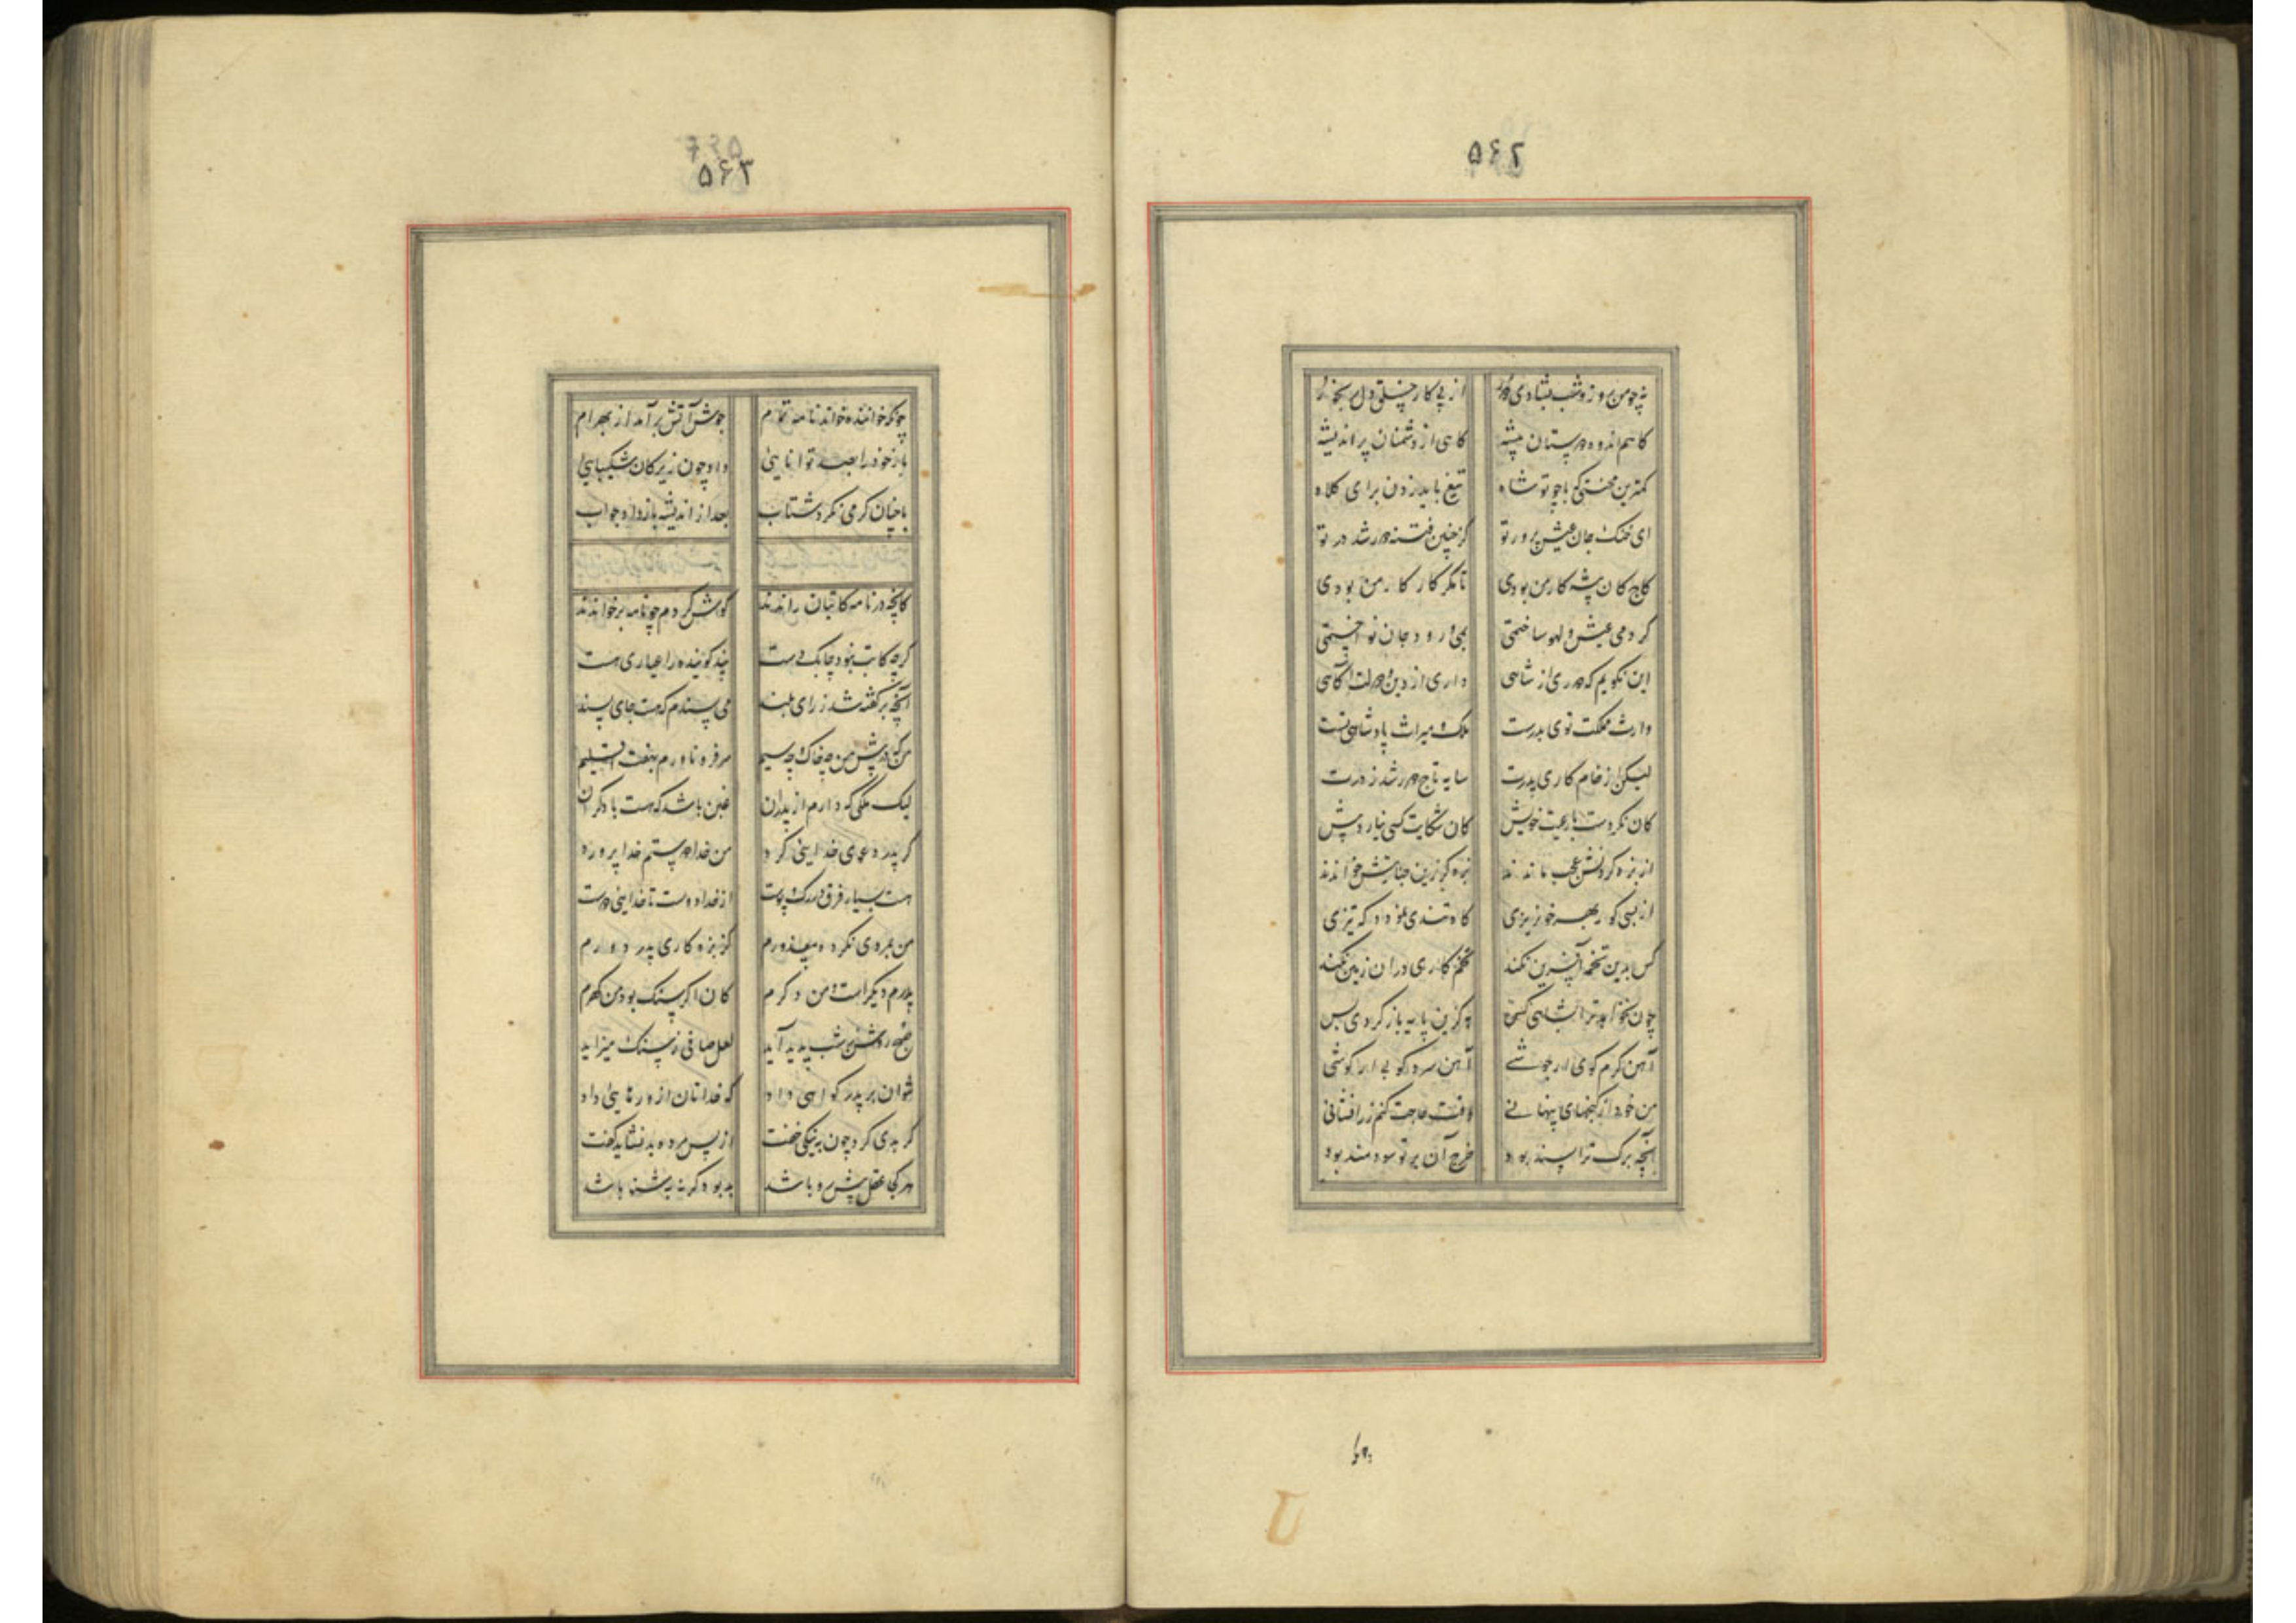 ۵۶۲
نه چو من روز و شب بشادی از پی کار خلق دل
گاهم اندوه دوستان پیشه گاهی از دشمنان پر اندیشه
کمترین محنتی که با چو تو شاه تیغ باید زدن برای کلاه
ای خنک جان عیش پرور تو کز چنین فتنه دور شد در تو
کاج کان پیشه کار من بودی تا مگر کار کار من بودی
کردمی عیش و لهو ساختمی بمی و رود جان نواختمی
این نگویم که دوری از شاهی داری از دین و دولت آگاهی
وارث مملکت توی بدرست ملک میراث پادشاهی تست
لیکن از خام کاری پدرت سایه تاج دور شد ز درت
کان نکردست با رعیت خویش کان شکایت کسی نیارد پیش
از بزه کردنش عجب ماندند بزه گر زین جنایتش خواندند
از بسی کور بهر خونریزی گاه تندی نمود و گه تیزی
کس بدین تخمه آفرین نکند تخم کاری در ان زمین نکند
چون نخواهد ترا بشاهی کس به کزین پایه باز گردی بس
آهن گرم کوی ار جوشی آهن سرد کوبی ار کوشی
من خود از گنجهای پنهانی وقت حاجت کنم زر افشانی
آنچه برگ ترا پسند بود خرج آن بر تو سودمند بود
۵۶۳
چونکه خواننده خواند نامه تمام جوش آتش بر آمد از بهرام
باز خود را بصد توانایی داد چون زیرکان شکیبایی
با چنان گرمی نکرد شتاب بعد از اندیشه باز داد جواب
کانچه در نامه کاتبان راندند گوش کردم چو نامه برخواندند
گرچه کاتب نبود چابک دست پند گوینده را عیاری هست
آنچه بر گفته شد ز رای بلند می پسندم که هست جای پسند
من که در پیش من چه خاک و چه سیم سر فرو ناورم بهفت اقلیم
لیک ملکی که دارم از پدران عیب باشد که هست با دگران
گر پدر دعوی خدایی کرد من خدا دوستم خدا پرورد
هست بسیار فرق در رگ و پوست از خدا دوست تا خدایی دوست
من بمردی نکرده معذورم کز بزه کاری پدر دورم
پدرم دیگر است و من دگرم کان اگر سنگ بود من گهرم
صبح روشن ز شب پدید آید لعل صافی ز سنگ میزاید
نتوان بر پدر گواهی داد که خداتان ازو رهایی داد
گر بدی کرد چون به نیکی خفت از پس مرده بد نشاید گفت
هر کجا عقل پیش رو باشد بد بود گرنه بد شنا باشد